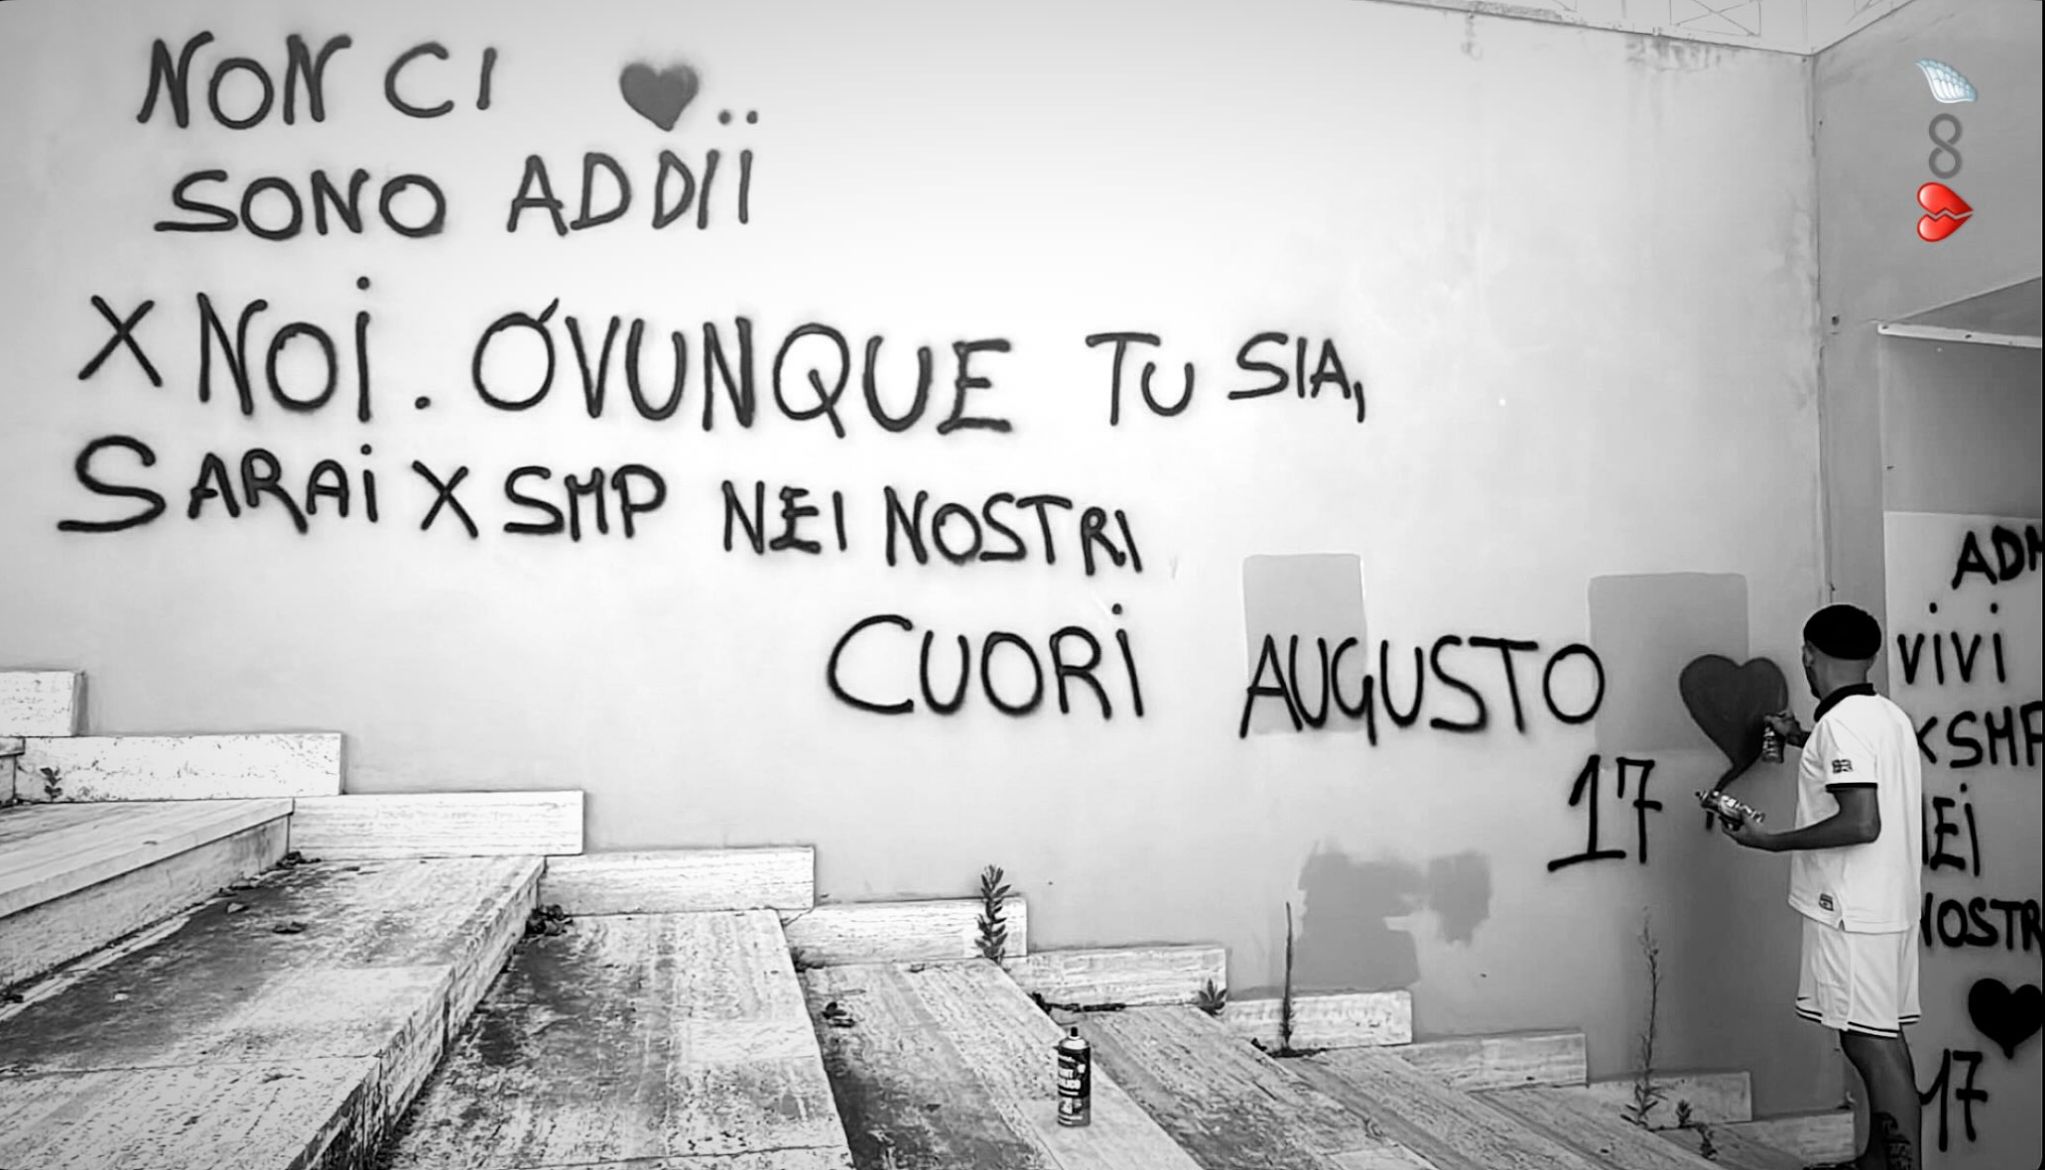 NON CI
SONO ADDII
X NOI. OVUNQUE TU SIA,
SARAI X SMP NEI NOSTRI
CUORI AUGUSTO
17
VIVI
XSMP
NEI
NOSTR
17